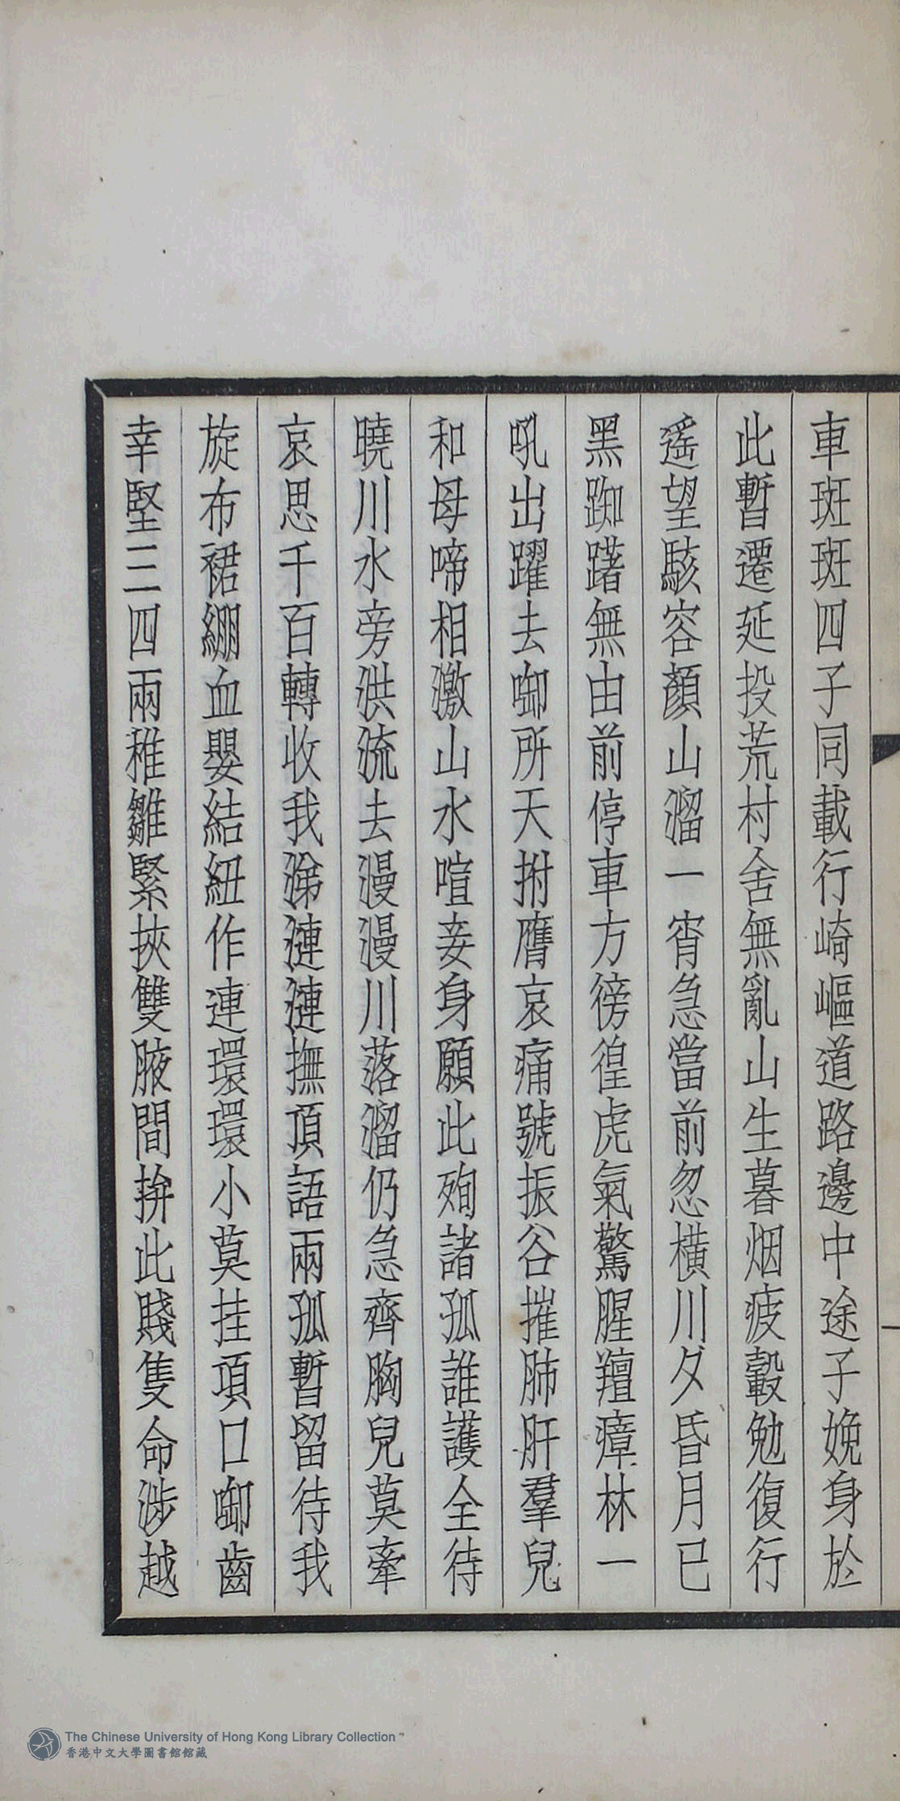 車斑斑四子同載行崎嶇道路邊中途子娩身於
此暫遷延投荒村舍無亂山生暮烟疲轂勉復行
遙望駭容顏山溜一宵急當前忽橫川夕昏月已
黑踟躇無由前停車方徬徨虎氣驚腥羶瘴林一
吼出躍去啣所天拊膺哀痛號振谷摧肺肝羣兒
和母啼相激山水喧妾身願此殉諸孤誰護全待
曉川水旁洪流去漫漫川落溜仍急齊胸兒莫牽
哀思千百轉收我涕漣漣撫頂語兩孤暫留待我
旋布裙繃血嬰結紐作連環環小莫挂項口啣齒
幸堅三四兩稚雛緊挾雙腋間拚此賤隻命涉越
The Chinese University of Hong Kong Library Collection
香港中文大學圖書館館藏